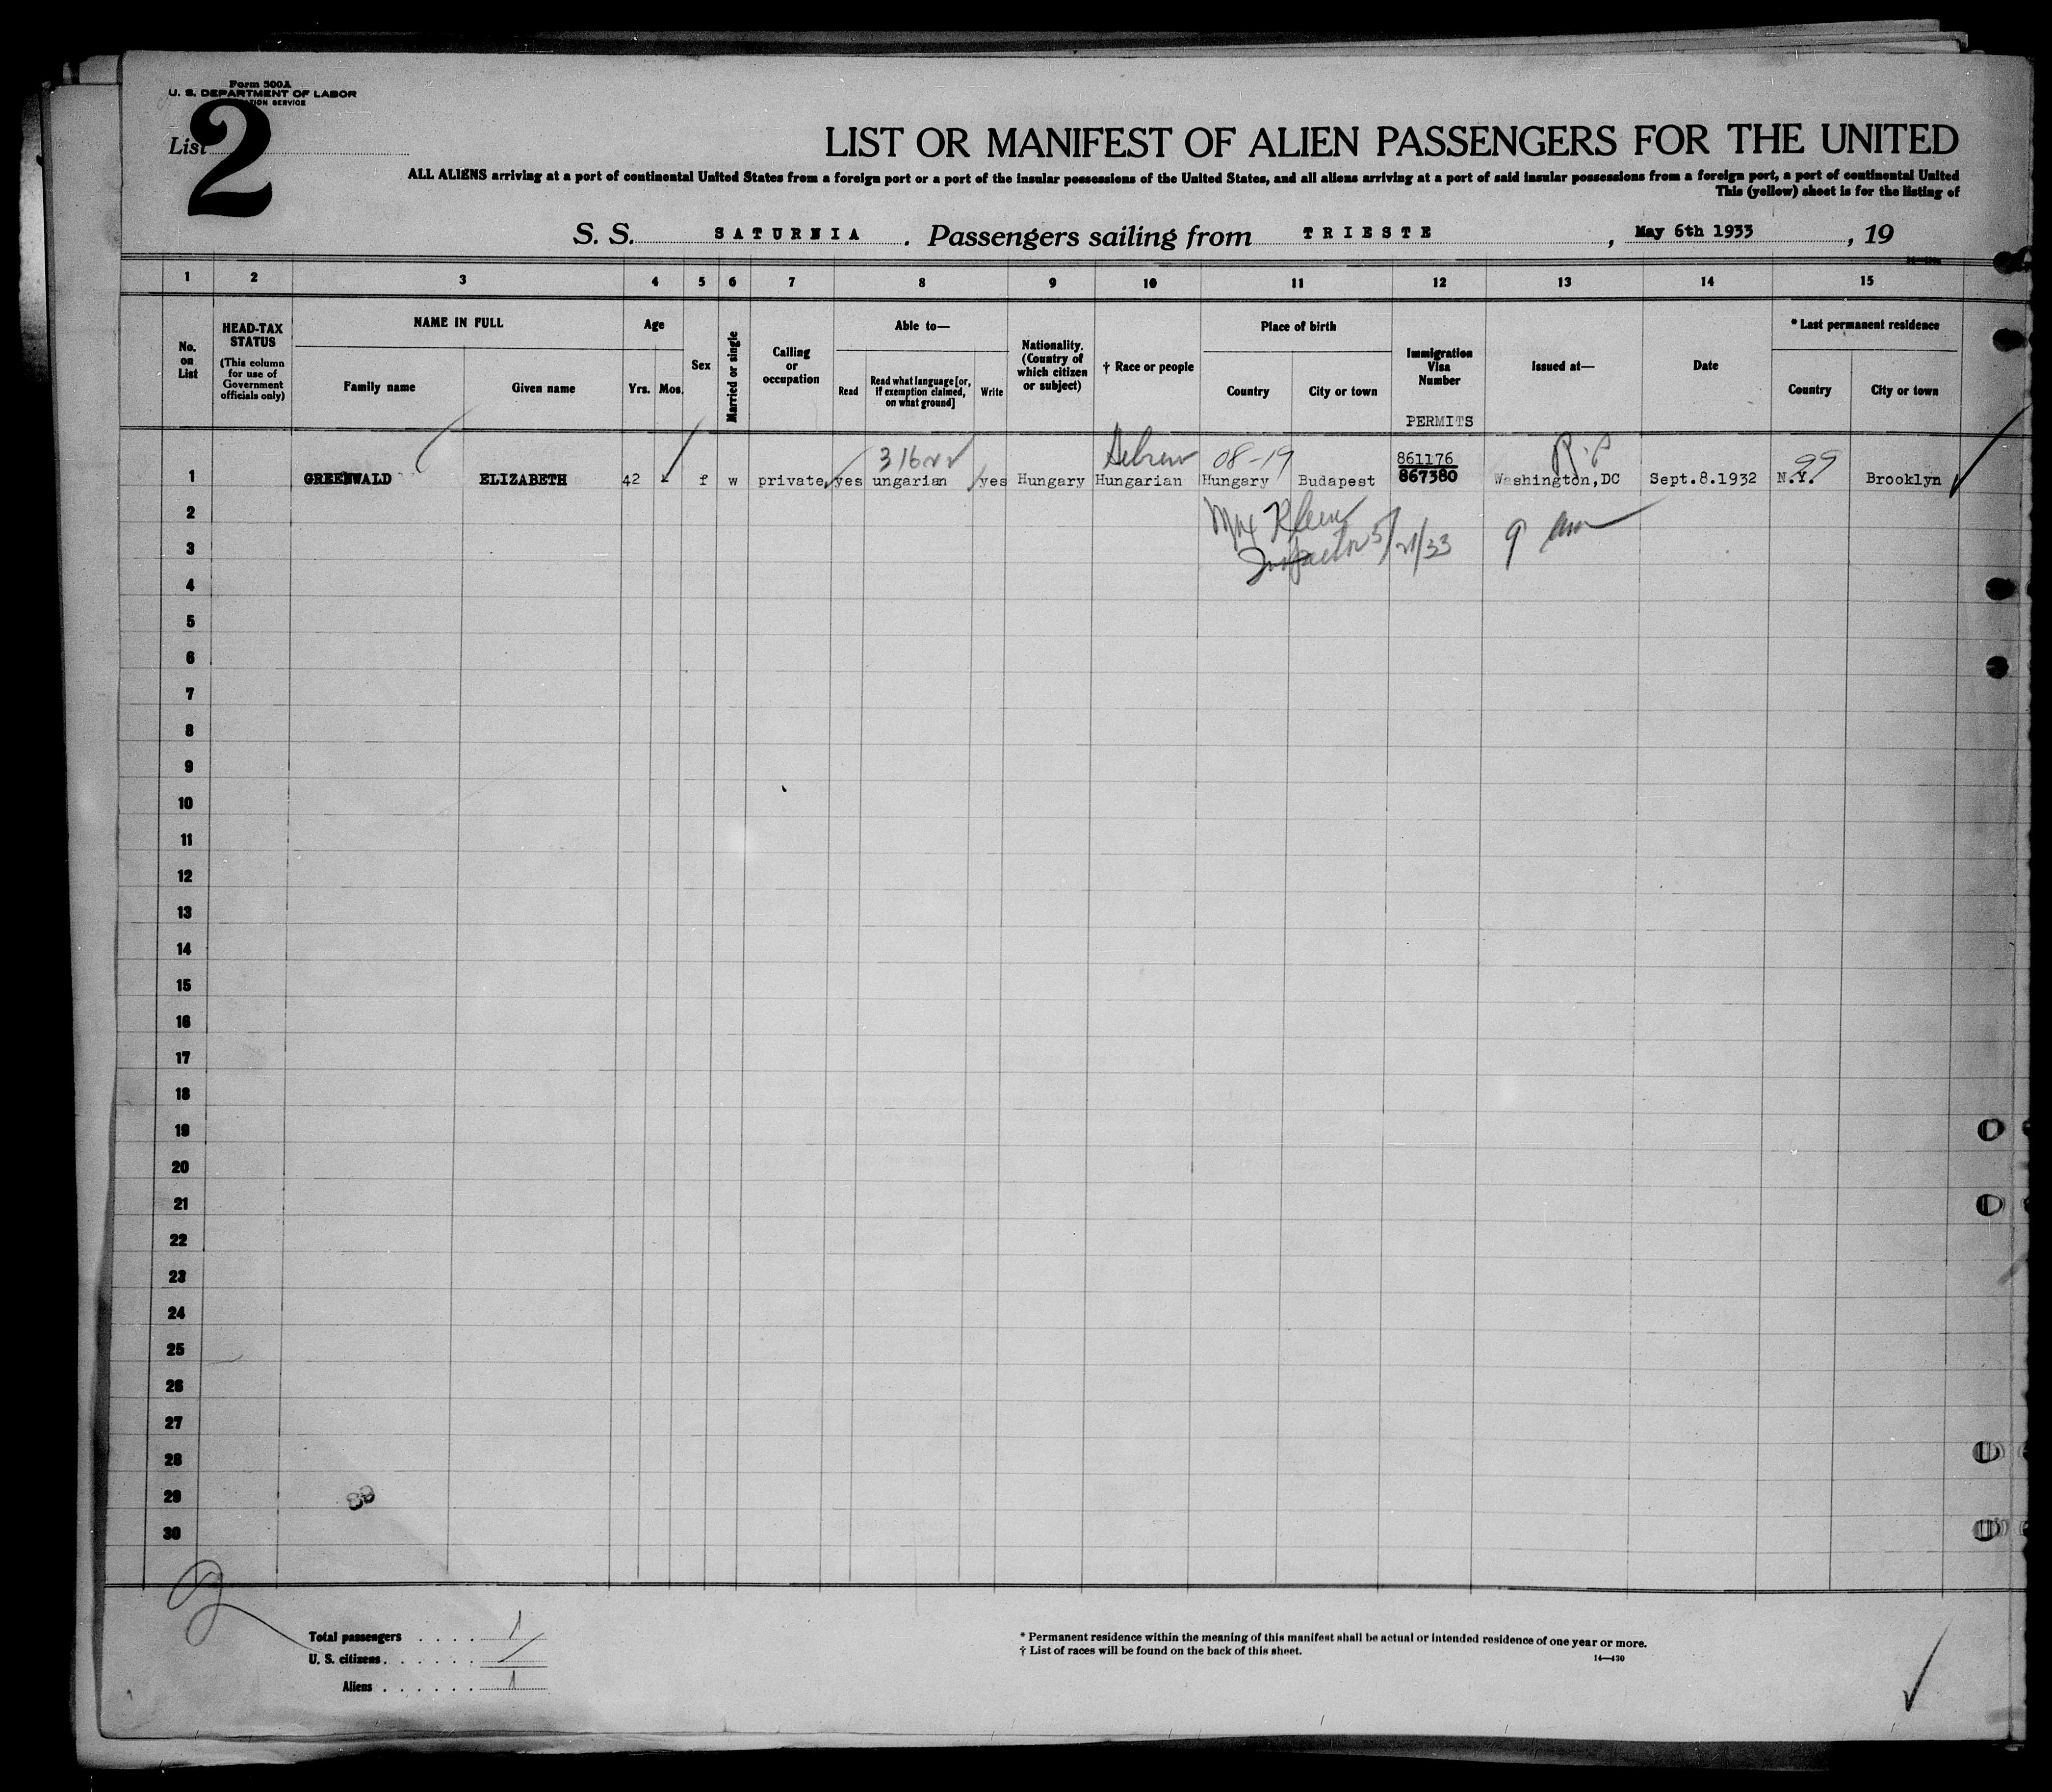 Form 500A
U. S. DEPARTMENT OF LABOR
List 2
LIST OR MANIFEST OF ALIEN PASSENGERS FOR THE UNITED
ALL ALIENS arriving at a port of continental United States from a foreign port or a port of the insular possessions of the United States, and all aliens arriving at a port of said insular possessions from a foreign port, a port of continental United
This (yellow) sheet is for the listing of
S. S. SATURNIA. Passengers sailing from TRIESTE, May 6th 1933, 19
1 2 3 4 5 6 7 8 9 10 11 12 13 14 15
No. on List
HEAD-TAX STATUS (This column for use of Government officials only)
NAME IN FULL
Family name Given name
Age
Yrs. Mos.
Sex
Married or single
Calling or occupation
Able to—
Read Read what language [or, if exemption claimed, on what ground] Write
Nationality. (Country of which citizen or subject)
† Race or people
Place of birth
Country City or town
Immigration Visa Number
PERMITS
Issued at—
Date
* Last permanent residence
Country City or town
316 Hebrew 08-19 861176 R.P. 99
1 GREENWALD ELIZABETH 42 f w private yes ungarian yes Hungary Hungarian Hungary Budapest 867380 Washington,DC Sept.8.1932 N.Y. Brooklyn
2 Klein
3 Inspector 5/21/33 9 am
4
5
6
7
8
9
10
11
12
13
14
15
16
17
18
19
20
21
22
23
24
25
26
27
28
29
30
Total passengers . . . . 1
U. S. citizens . . . . . . /
Aliens . . . . . . 1
* Permanent residence within the meaning of this manifest shall be actual or intended residence of one year or more.
† List of races will be found on the back of this sheet.
14—430